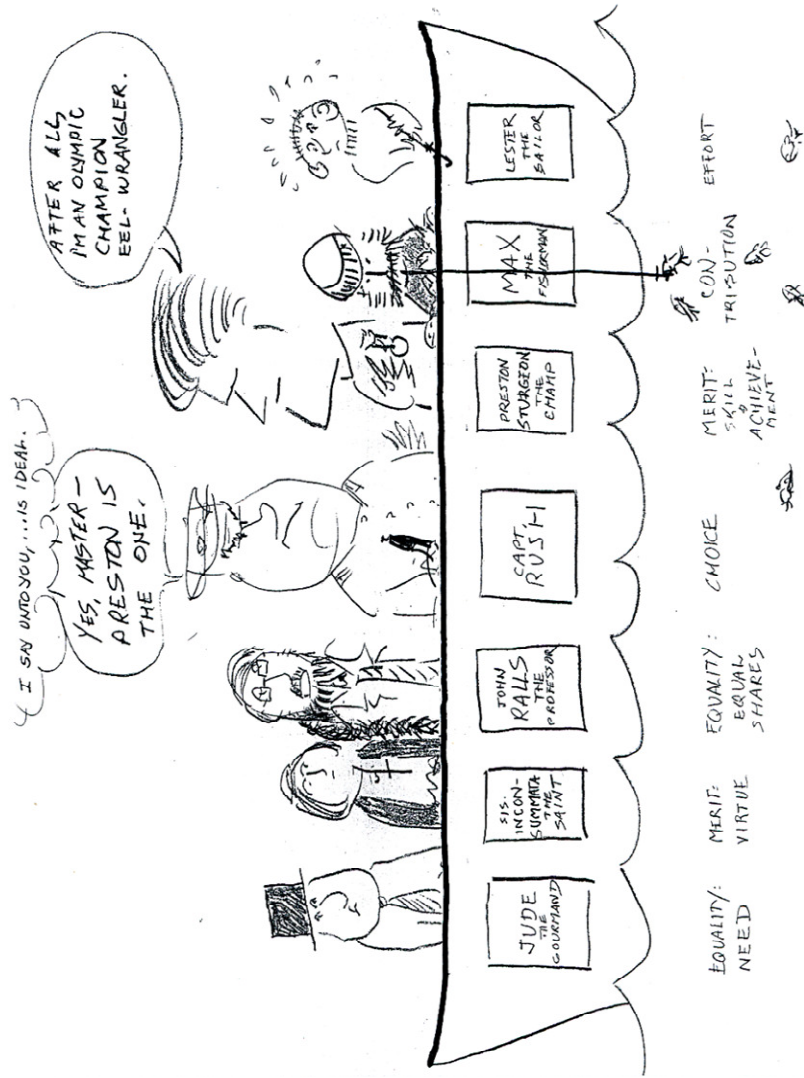 I SAY UNTO YOU,...IS IDEAL.
YES, MASTER –
PRESTON IS
THE ONE.
AFTER ALL,
I'M AN OLYMPIC
CHAMPION
EEL-WRANGLER.
JUDE
THE
GOURMAND
SIS.
INCON-
SUMMATA
THE
SAINT
JOHN
RALLS
THE
PROFESSOR
CAPT.
RUSH
PRESTON
STURGEON
THE
CHAMP
MAX
THE
FISHERMAN
LESTER
THE
SAILOR
EQUALITY:
NEED
MERIT:
VIRTUE
EQUALITY:
EQUAL
SHARES
CHOICE
MERIT:
SKILL
&
ACHIEVE-
MENT
CON-
TRIBUTION
EFFORT